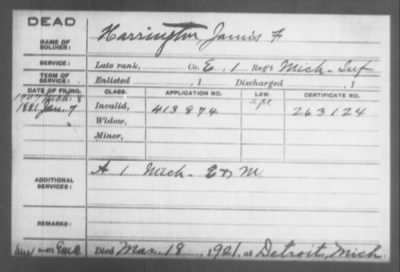 DEAD
NAME OF SOLDIER: Harrington, James F
SERVICE: Late rank, Co. E, 1 Reg't Mich. Inf
TERM OF SERVICE: Enlisted , 1 Discharged , 1
DATE OF FILING. CLASS. APPLICATION NO. LAW. CERTIFICATE NO.
1881 Jan. 7 Invalid, 413874 263124
Widow,
Minor,
ADDITIONAL SERVICES: A 1 Mich. E & M
REMARKS:
Died Mar 18, 1921, at Detroit, Mich.